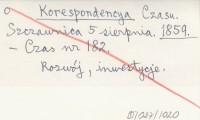 Korespondencya Czasu.
Szczawnica 5 sierpnia. 1859.
– Czas nr 182.
Rozwój, inwestycje.